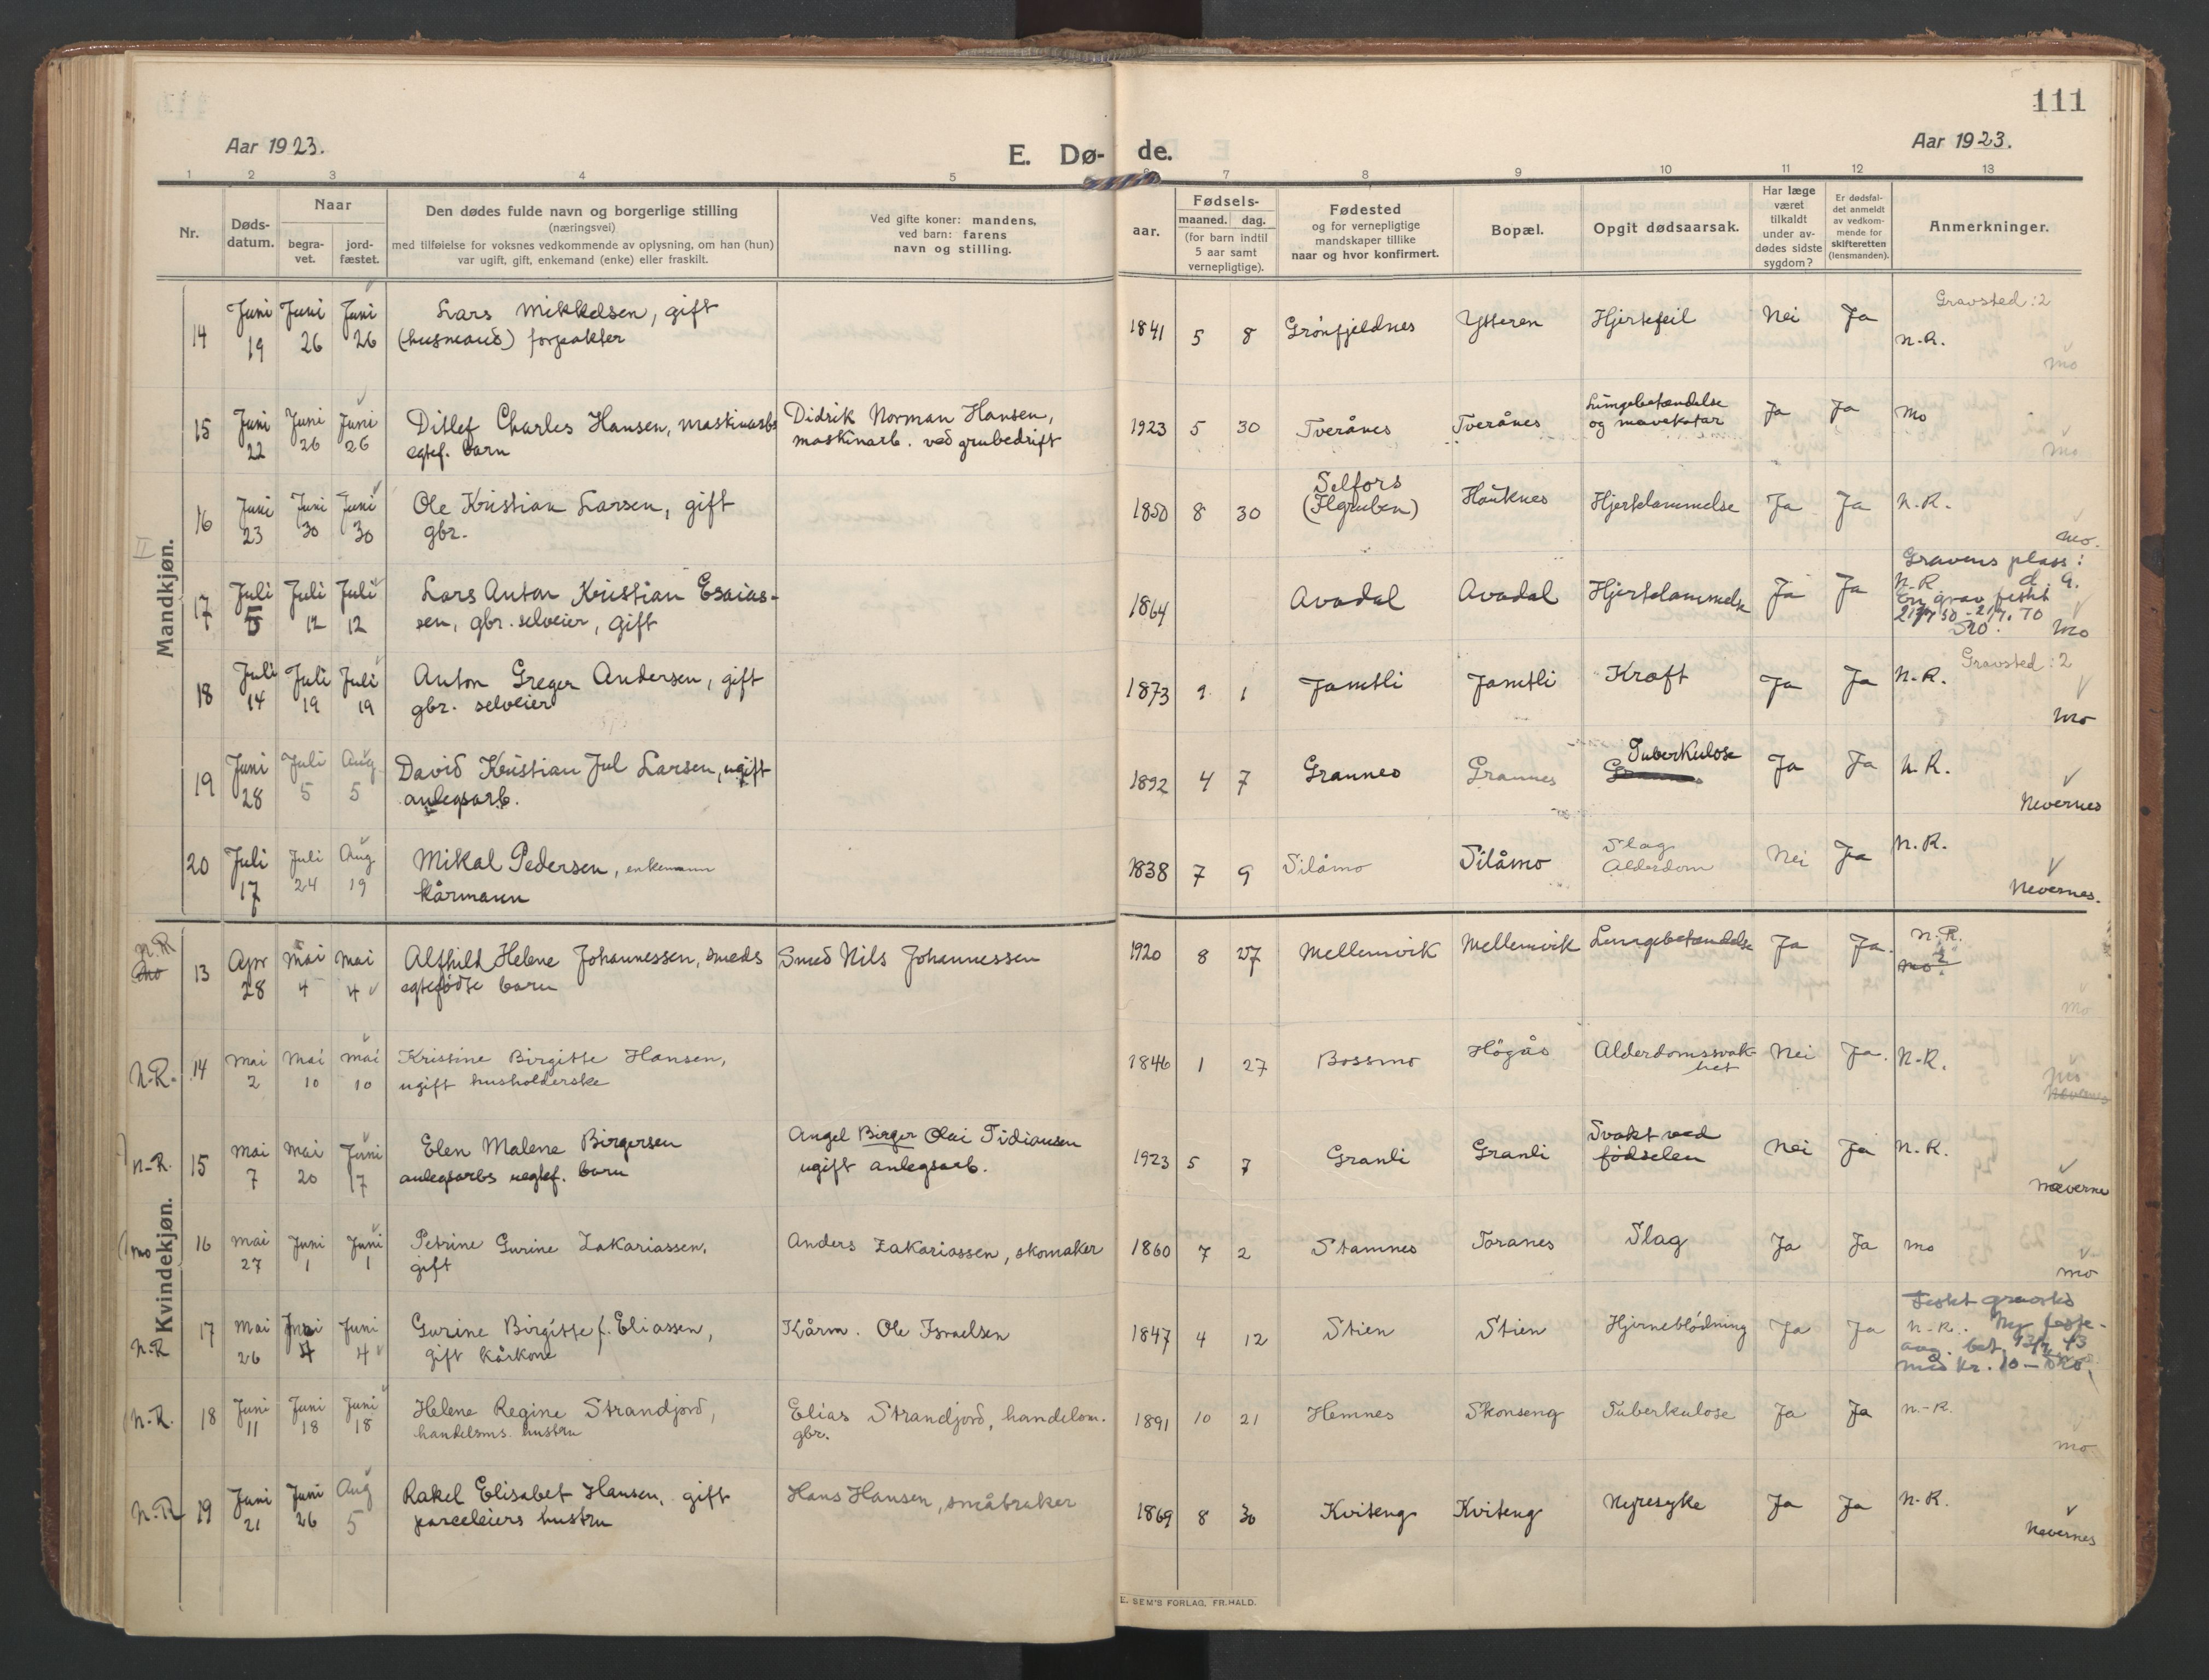 111
Aar 1923.
E. Dø-
de.
Aar 1923.
1 2 3 4 5 7 8 9 10 11 12 13
Nr.
Døds-
datum.
Naar
begra-
vet.
jord-
fæstet.
Den dødes fulde navn og borgerlige stilling
(næringsvei)
med tilføielse for voksnes vedkommende av oplysning, om han (hun)
var ugift, gift, enkemand (enke) eller fraskilt.
Ved gifte koner: mandens,
ved barn: farens
navn og stilling.
Fødsels-
aar.
maaned. dag.
(for barn indtil
5 aar samt
vernepligtige).
Fødested
og for vernepligtige
mandskaper tillike
naar og hvor konfirmert.
Bopæl.
Opgit dødsaarsak.
Har læge
været
tilkaldt
under av-
dødes sidste
sygdom?
Er dødsfal-
det anmeldt
av vedkom-
mende for
skifteretten
(lensmanden).
Anmerkninger.
Mandkjøn.
14 Juni 19 Juni 26 Juni 26 Lars Mikkelsen, gift
(husmand) forpakter
1841 5 8 Grönfjeldnes Ytteren Hjertefeil Nei Ja N.R.
Gravsted: 2
Mo
15 Juni 22 Juni 26 Juni 26 Ditlef Charles Hansen, maskinarbs
egtef. barn
Didrik Norman Hansen,
maskinarb. ved grubedrift
1923 5 30 Tverånes Tverånes Lungebetændelse
og mavekatar
Ja Ja Mo
Mo
16 Juni 23 Juni 30 Juni 30 Ole Kristian Larsen, gift
gbr.
1850 8 30 Selfors
(Ilgruben)
Hauknes Hjertelammelse Ja Ja N.R.
Mo.
17 Juli 5 Juli 12 Juli 12 Lars Anton Kristian Esaias-
sen, gbr. selveier, gift
1864 Avadal Avadal Hjertelammelse Ja Ja
Gravens plass:
N.R.
En grav festet
Mo
18 Juli 14 Juli 19 Juli 19 Anton Greger Andersen, gift
gbr. selveier
1873 9 1 Jamtli Jamtli Kræft Ja Ja N.R.
Gravsted: 2
Mo
19 Juni 28 Juli 5 Aug 5 David Kristian Jul Larsen, ugift
anlegsarb.
1892 4 7 Grannes Grannes Tuberkulose Ja Ja N.R.
Nevernes
20 Juli 17 Juli 24 Aug 19 Mikal Pedersen, enkemann
kårmann
1838 7 9 Silåmo Silåmo Slag
Alderdom
Nei Ja N.R.
Nevernes.
Kvindekjøn.
N.R.
Mo
13 Apr 28 Mai 4 Mai 4 Alfhild Helene Johannessen, smeds
egtefødte barn
Smed Nils Johannessen
1920 8 27 Mellemvik Mellemvik Lungebetændelse Ja Ja. N.R.
Mo.
Mo
N.R. 14 Mai 2 Mai 10 Mai 10 Kristine Birgitte Hansen,
ugift husholderske
1846 1 27 Bossmo Högås Alderdomssvak-
het
Nei Ja. N.R.
Mo
Nevernes
N.R. 15 Mai 7 Mai 20 Juni 17 Elen Malene Birgersen
anlegsarbs uegtef. barn
Angel Birger Olai Tidiansen
ugift anlegsarb.
1923 5 7 Granli Granli Svakt ved
fødselen
Nei Ja N.R.
Mo 16 Mai 27 Juni 1 Juni 1 Petrine Gurine Zakariassen,
gift
Anders Zakariassen, skomaker
1860 7 2 Stamnes Toranes Slag Ja Ja Mo
Mo
N.R. 17 Mai 26 Juni 4 Juni 4 Gurine Birgitte f. Eliassen,
gift kårkone
Kårm. Ole Israelsen
1847 4 12 Stien Stien Hjerneblödning Ja Ja
N.R. Ny feste-
med kr. 10 –
N.R. 18 Juni 11 Juni 18 Juni 18 Helene Regine Strandjord,
handelsms. hustru
Elias Strandjord, handelsm.
gbr.
1891 10 21 Hemnes Skonseng Tuberkulose Ja Ja N.R.
Mo
N.R. 19 Juni 21 Juni 26 Aug 5 Rakel Elisabet Hansen, gift
parceleiers hustru
Hans Hansen, småbruker
1869 8 30 Kviteng Kviteng Nyresyke Ja Ja N.R.
Nevernes
E. SEM'S FORLAG, FR.HALD.